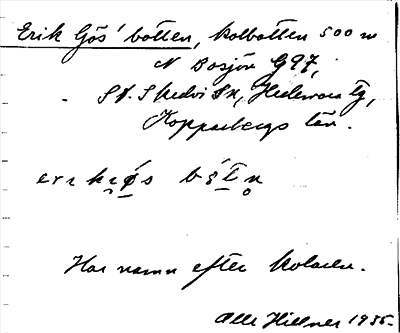 Erik Gös' botten, kolbotten 500 m
N Dosjön G97,
St. Skedvi Sn, Hedemora tg,
Kopparbergs län.
erikgøs bǫ́tn̥
Har namn efter kolaren.
Olle Hillner 1935.